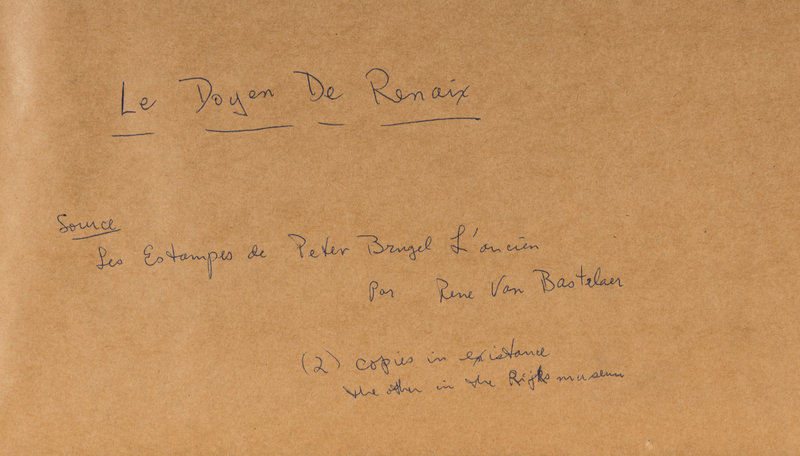 Le Doyen De Renaix
Source
Les Estampes de Peter Brugel L'ancien
Par Rene Van Bastelaer
(2) copies in existance
the other in the Rijksmuseum